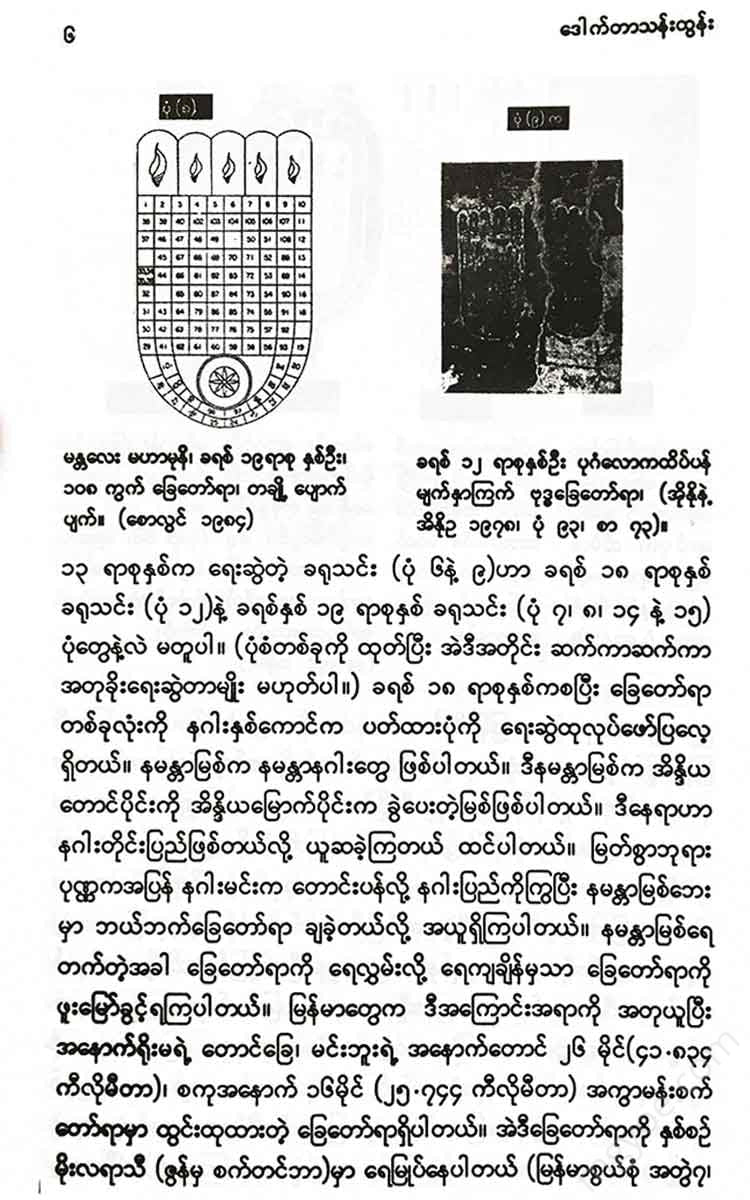 ၆
ဒေါက်တာသန်းထွန်း
ပုံ (၈)
ပုံ (၉) က
1 2 3 4 5 6 7 8 9 10
38 39 40 102 103 104 105 106 107 11
37 46 47 48 49 50 51 108 12
45 67 68 69 70 71 52 13
44 66 81 82 83 72 53 14
32 65 80 87 84 73 54 90
31 43 64 79 86 85 74 55 91
30 42 63 78 77 76 75 57 92
29 41 62 61 60 59 58 56 93 19
မန္တလေး မဟာမုနိ၊ ခရစ် ၁၉ရာစု နှစ်ဦး၊
၁၀၈ ကွက် ခြေတော်ရာ၊ တချို့ ပျောက်
ပျက်။ (စောလွင် ၁၉၈၄)
ခရစ် ၁၂ ရာစုနှစ်ဦး ပုဂံလောကထိပ်ပန်
မျက်နှာကြက် ဗုဒ္ဓခြေတော်ရာ၊ (အိုနိုနဲ့
အိနိုဥ ၁၉၇၈၊ ပုံ ၉၃၊ စာ ၇၃)။
၁၃ ရာစုနှစ်က ရေးဆွဲတဲ့ ခရုသင်း (ပုံ ၆နဲ့ ၉)ဟာ ခရစ် ၁၈ ရာစုနှစ်
ခရုသင်း (ပုံ ၁၂)နဲ့ ခရစ်နှစ် ၁၉ ရာစုနှစ် ခရုသင်း (ပုံ ၇၊ ၈၊ ၁၄ နဲ့ ၁၅)
ပုံတွေနဲ့လဲ မတူပါ။ (ပုံစံတစ်ခုကို ထုတ်ပြီး အဲဒီအတိုင်း ဆက်ကာဆက်ကာ
အတုခိုးရေးဆွဲတာမျိုး မဟုတ်ပါ။) ခရစ် ၁၈ ရာစုနှစ်ကစပြီး ခြေတော်ရာ
တစ်ခုလုံးကို နဂါးနှစ်ကောင်က ပတ်ထားပုံကို ရေးဆွဲထုလုပ်ဖော်ပြလေ့
ရှိတယ်။ နမန္တာမြစ်က နမန္တာနဂါးတွေ ဖြစ်ပါတယ်။ ဒီနမန္တာမြစ်က အိန္ဒိယ
တောင်ပိုင်းကို အိန္ဒိယမြောက်ပိုင်းက ခွဲပေးတဲ့မြစ်ဖြစ်ပါတယ်။ ဒီနေရာဟာ
နဂါးတိုင်းပြည်ဖြစ်တယ်လို့ ယူဆခဲ့ကြတယ် ထင်ပါတယ်။ မြတ်စွာဘုရား
ပုဏ္ဏကအပြန် နဂါးမင်းက တောင်းပန်လို့ နဂါးပြည်ကိုကြွပြီး နမန္တာမြစ်ဘေး
မှာ ဘယ်ဘက်ခြေတော်ရာ ချခဲ့တယ်လို့ အယူရှိကြပါတယ်။ နမန္တာမြစ်ရေ
တက်တဲ့အခါ ခြေတော်ရာကို ရေလွှမ်းလို့ ရေကျချိန်မှသာ ခြေတော်ရာကို
ဖူးမြော်ခွင့်ရကြပါတယ်။ မြန်မာတွေက ဒီအကြောင်းအရာကို အတုယူပြီး
အနောက်ရိုးမရဲ့ တောင်ခြေ၊ မင်းဘူးရဲ့ အနောက်တောင် ၂၆ မိုင်(၄၁.၈၃၄
ကီလိုမီတာ)၊ စကုအနောက် ၁၆မိုင် (၂၅.၇၄၄ ကီလိုမီတာ) အကွာမန်းစက်
တော်ရာမှာ ထွင်းထုထားတဲ့ ခြေတော်ရာရှိပါတယ်။ အဲဒီခြေတော်ရာကို နှစ်စဉ်
မိုးလရာသီ (ဇွန်မှ စက်တင်ဘာ)မှာ ရေမြုပ်နေပါတယ် (မြန်မာစွယ်စုံ အတွဲ၇၊